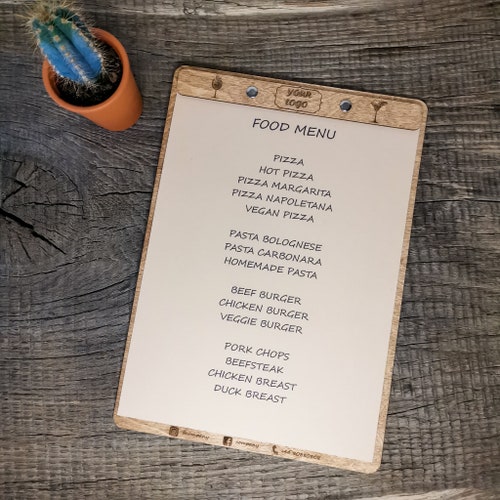 your
logo
FOOD MENU
PIZZA
HOT PIZZA
PIZZA MARGARITA
PIZZA NAPOLETANA
VEGAN PIZZA
PASTA BOLOGNESE
PASTA CARBONARA
HOMEMADE PASTA
BEEF BURGER
CHICKEN BURGER
VEGGIE BURGER
PORK CHOPS
BEEFSTEAK
CHICKEN BREAST
DUCK BREAST